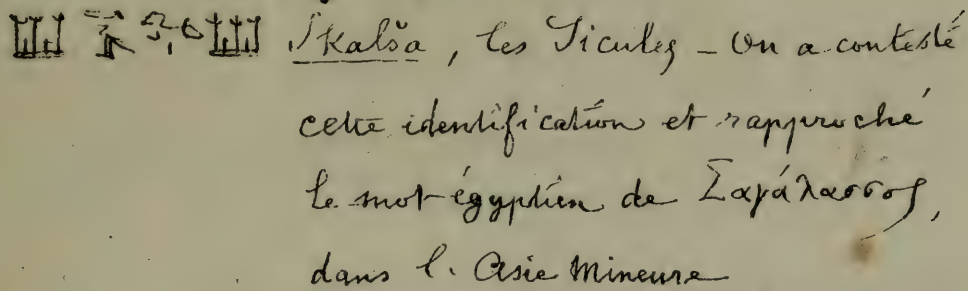 Škalša, les Sicules - On a contesté
cette identification et rapproché
le mot égyptien de Σαγάλασσος,
dans l'Asie Mineure